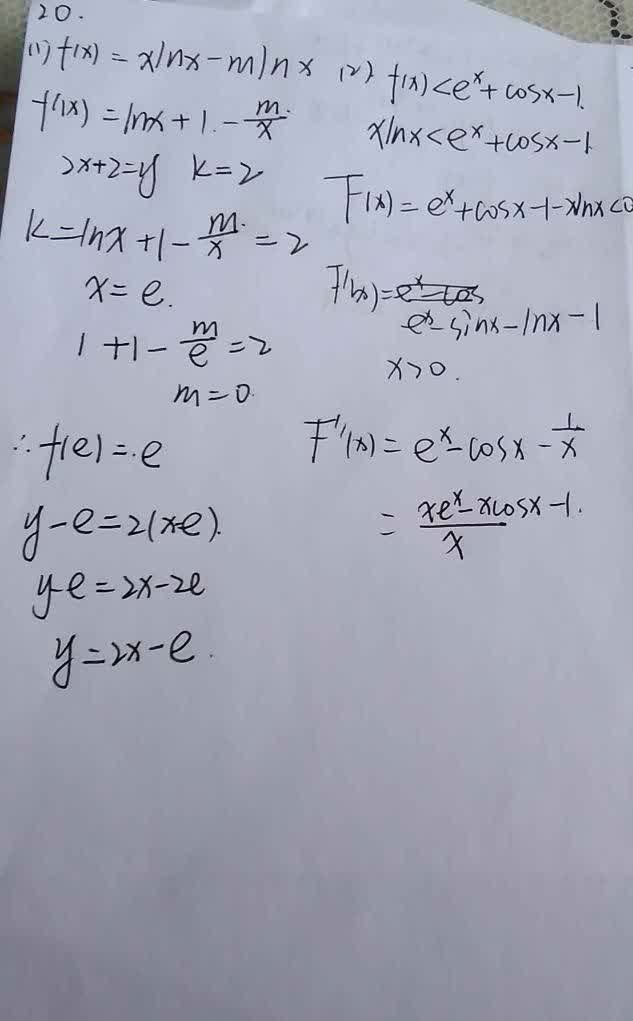 20.
(1) f(x) = xlnx - mlnx
f'(x) = lnx + 1 - m/x
2x+2=y k=2
k=lnx+1-m/x=2
x=e.
1+1-m/e=2
m=0
∴f(e)=e
y-e=2(x-e).
y-e=2x-2e
y=2x-e.
(2) f(x)<e^x+cosx-1.
xlnx<e^x+cosx-1
F(x)=e^x+cosx-1-xlnx<0
F'(x)=
e^x-sinx-lnx-1
x>0.
F''(x)=e^x-cosx-1/x
=(xe^x-xcosx-1)/x